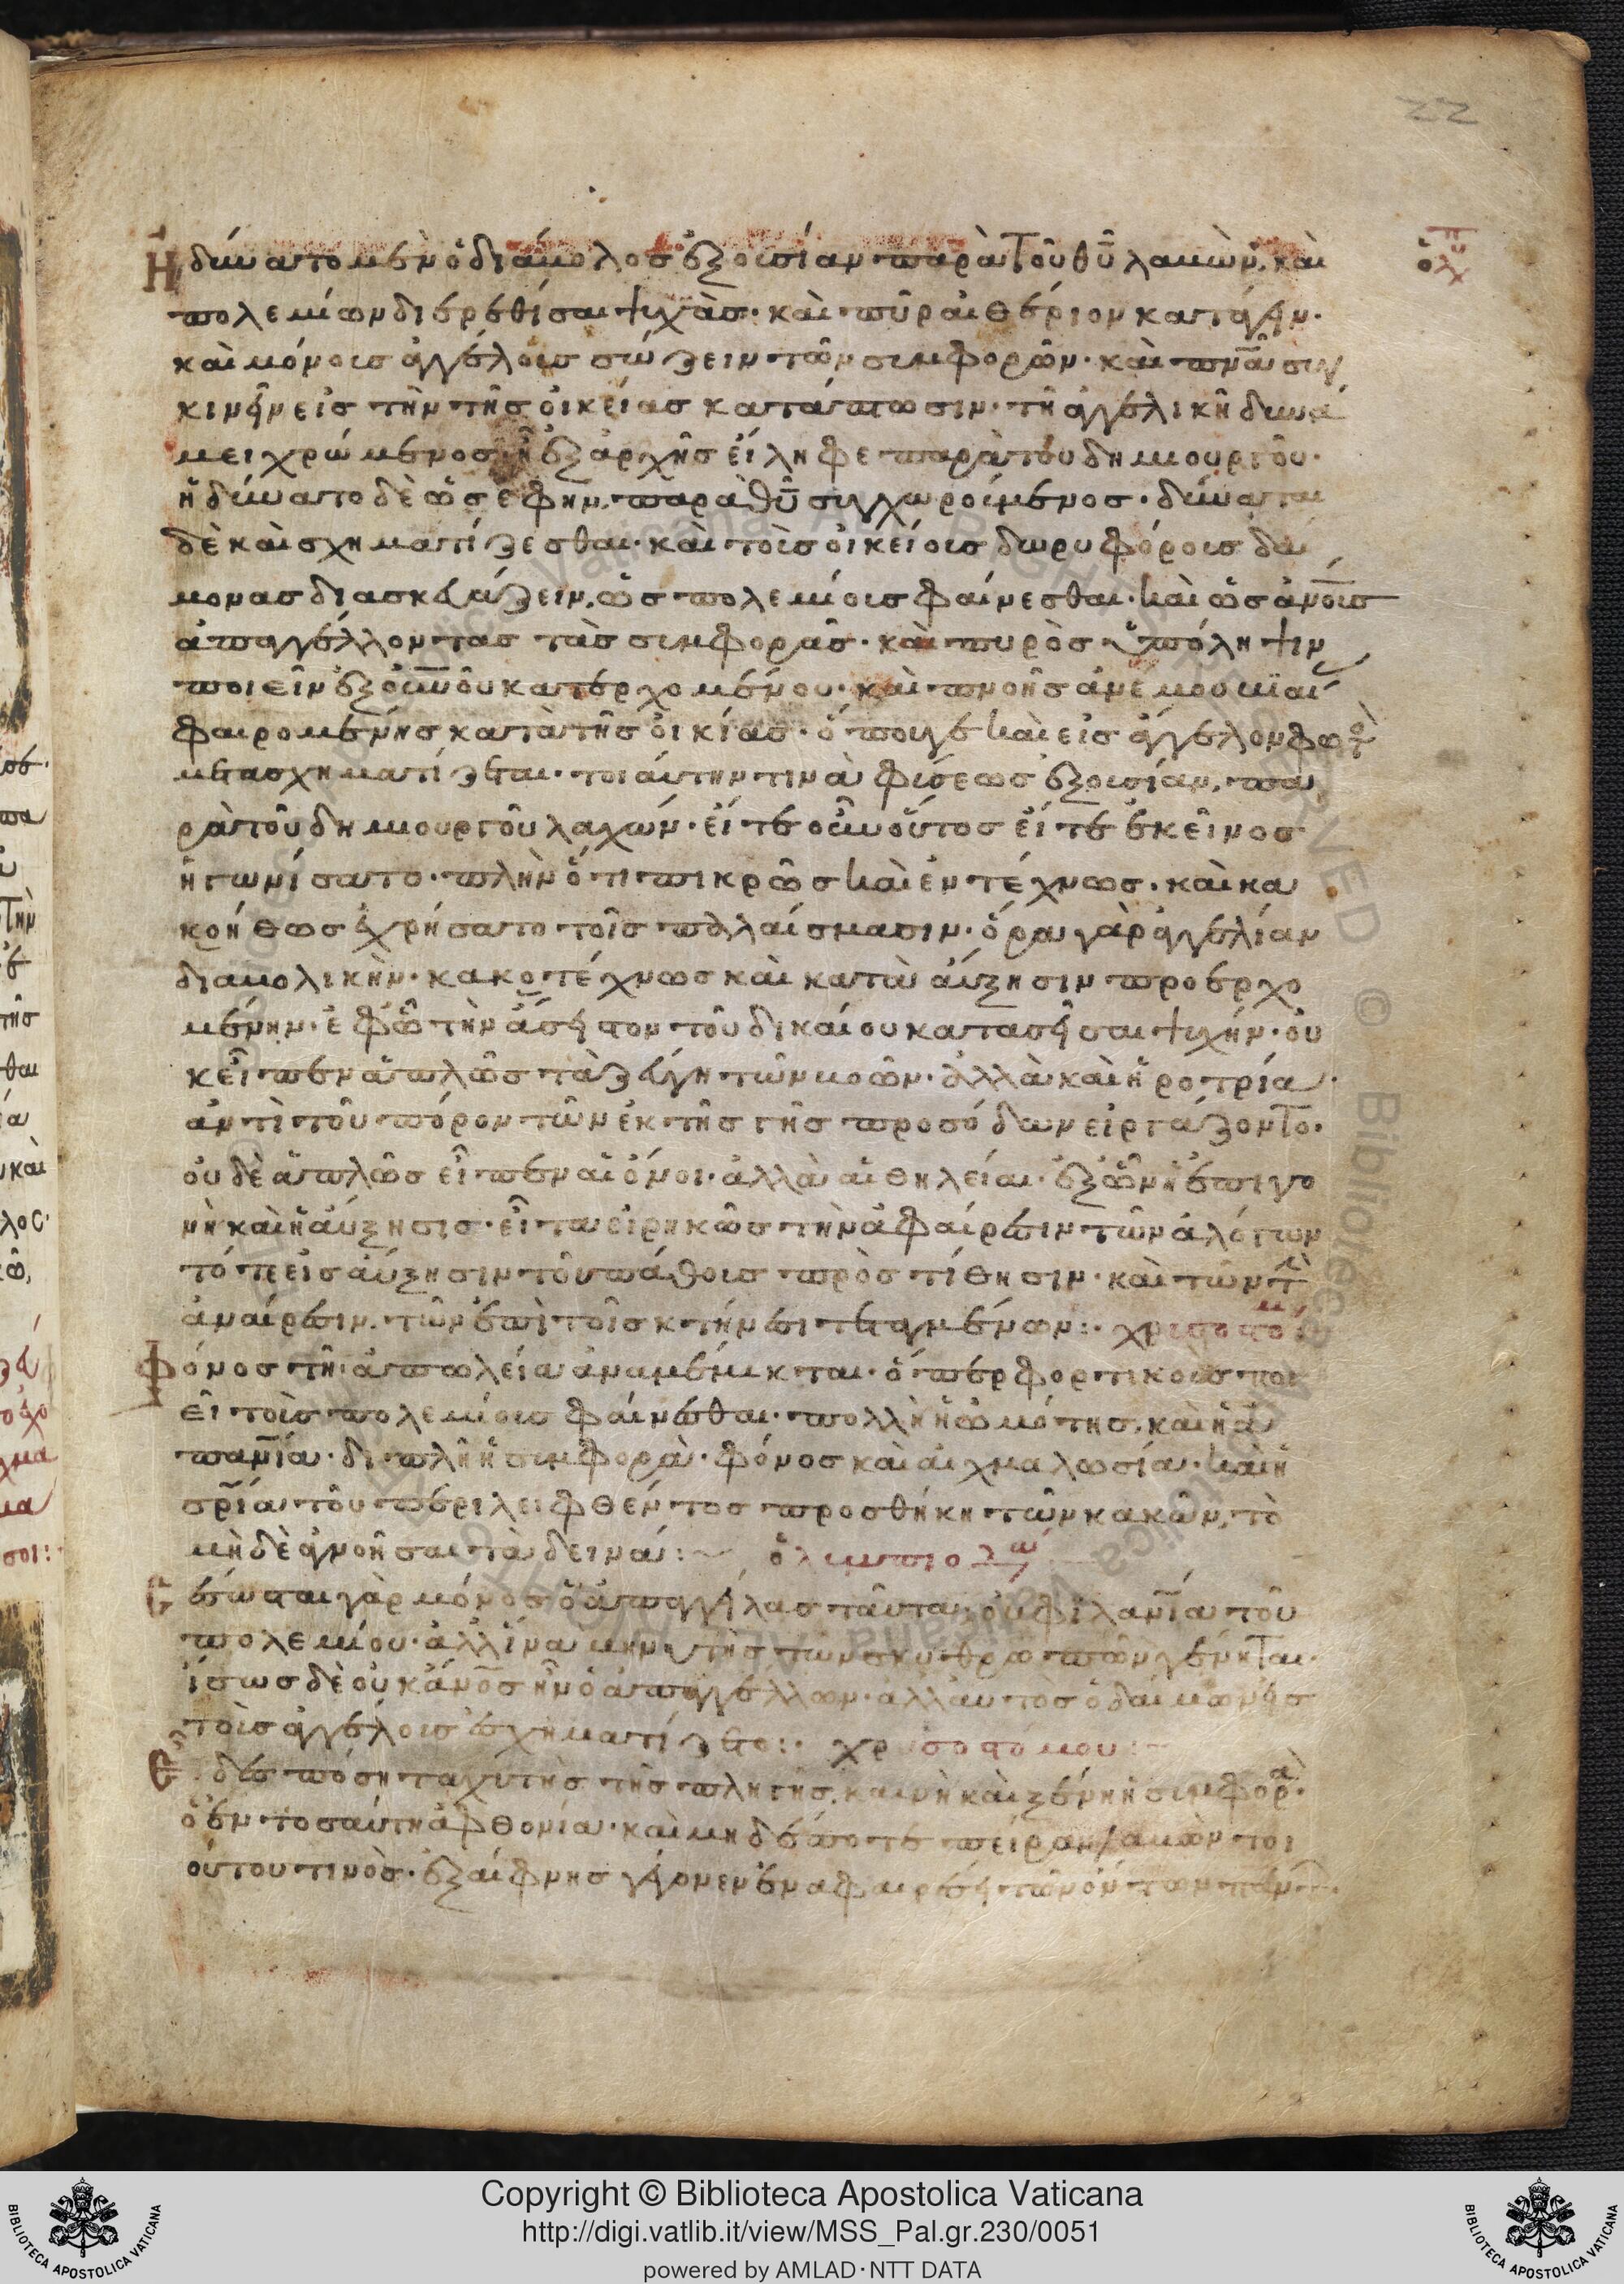 22
Ἠδύνατο μὲν ὁ διάβολος ἐξουσίαν παρὰ τοῦ θῡ λαβὼν, καὶ
πολεμίων διερεθίσαι ψυχὰς· καὶ πῦρ αἰθέριον κατάγειν·
καὶ μόνοις ἀγγέλοις σώζειν τῶν συμφορῶν· καὶ πνᾶ συγ
κινεῖν εἰς τὴν τῆς οἰκείας κατάπτωσιν· τῇ ἀγγελικῇ δυνά
μει χρώμενος· ἣν ἐξ ἀρχῆς εἴληφε παρὰ τοῦ δημιουργοῦ·
ἠδύνατο δὲ ὡς ἔφην, παρὰ θῡ συγχωρούμενος· δύναται
δὲ καὶ σχηματίζεσθαι· καὶ τοῖς οἰκείοις δωρυφόροις δαί
μονας διασκευάζειν, ὡς πολεμίοις φαίνεσθαι· καὶ ὡς ἀνο̅ι̅ς
ἀπαγγέλλοντας τὰς συμφοράς· καὶ πυρὸς ὑπόληψιν
ποιεῖν ἐξ οὐνοῦ κατερχομένου· καὶ πνοῆς ἀνέμου βιαί
φαιρομένης κατὰ τῆς οἰκίας· ὅπουγε καὶ εἰς ἄγγελον φωτὸς
μετασχηματίζεται· τοιαύτην τινὰ φύσεως ἐξουσίαν, πα
ρὰ τοῦ δημιουργοῦ λαχών· εἴτε οὖν οὕτως εἴτε ἐκεῖνως
ἠγωνίσατο· πλὴν ὅτι πικρῶς καὶ ἐντέχνως· καὶ κα
κοήθως ἐχρήσατο τοῖς παλαίσμασιν· ὅρα γὰρ ἀγγελίαν
διαβολικὴν· κακοτέχνως καὶ κατὰ αὔξησιν προερχο
μένην· ἐφ ὧ τὴν ἄσειστον τοῦ δικαίου κατασεῖσαι ψυχήν· οὐ
κ εἶπεν ἁπλῶς τὰ ζεύγη τῶν βοῶν· ἀλλὰ καὶ ἠροτρία·
ἀντὶ τοῦ πόρον τῶν ἐκ τῆς γῆς προσόδων εἰργάζοντο·
οὐδὲ ἁπλῶς εἶπεν αἱ ὄνοι· ἀλλὰ αἱ θήλειαι· ἐξ ὧν ἡ ἐπιγο
νὴ καὶ ἡ αὔξησις· εἶτα εἰρηκὼς τὴν ἀφαίρεσιν τῶν ἀλόγων
τό τε εἰς αὔξησιν τοῦ πάθους προστίθησιν· καὶ τῶν τὴν
ἀναίρεσιν τῶν ἐπὶ τοῖς κτήνεσι τεταγμένων:· χρυσοστόμ
Φόνος τῇ ἀπωλεία ἀναμέμικται· ὅπερ φορτικοὺς ποι
εῖ τοῖς πολεμίοις φαίνεσθαι· πολλὴ ἡ ὠμότης, καὶ ἡ ἀ
παν̅ία· διπλῆ ἡ συμφορὰ· φόνος καὶ αἰχμαλωσία· καὶ ἡ
σρ̅ία τοῦ περιλειφθέντος προσθήκη τῶν κακῶν, τὸ
μηδὲ ἀγνοῆσαι τὰ δεινά:~ ὀλυμπιοδώ
Σέσωσται γὰρ μόνος ὁ ἀπαγγείλας ταῦτα· οὐ φιλαν̅ία τοῦ
πολεμίου· ἀλλ ἵνα μηνυτὴς τῶν σκυθρωπῶν γένηται·
ἴσως δὲ οὐκ ἄνο̅ς ἦν ὁ ἀπαγγέλλων· ἀλλ αὐτος ὁ δαίμων εἰς
τοῖς ἀγγέλοις ἐσχηματίζετο:· χρυσοστόμου:~
δες πόση ταχύτης τῆς πληγῆς, καινὴ καὶ ξένη ἡ συμφορὰ·
ὁ ἐν τοσαύτη ἀφθονία· καὶ μηδέποτε πεῖραν λαβὼν τοι
ούτου τινὸς· ἐξαίφνης γέγονεν ἐν ἀφαιρέσει τῶν ὄντων πάντων
Copyright © Biblioteca Apostolica Vaticana
http://digi.vatlib.it/view/MSS_Pal.gr.230/0051
powered by AMLAD·NTT DATA
BIBLIOTECA APOSTOLICA VATICANA
BIBLIOTECA APOSTOLICA VATICANA